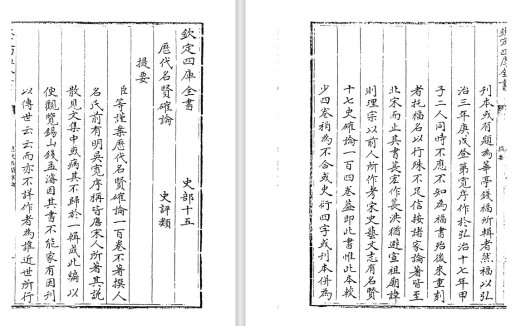 欽定四庫全書 史部十五
歷代名賢確論 史評類
提要
臣等謹案歷代名賢確論一百卷不著撰人
名氏前有明吳寛序稱皆唐宋人所著其說
散見文集中或病其不歸於一輯成此編以
便觀覽錫山錢孟濬因其書不能家有因刊
以傳世云云而亦不詳作者為誰近世所行
欽定四庫全書
提要
刊本或有題為華亭錢福所輯者然福以弘
治三年庚戌登第寛序作於弘治十七年甲
子二人同時不應不知為福書殆後來重刻
者托福名以行殊不足信按諸家論著皆至
北宋而止其書萇宏作萇洪猶避宣祖廟諱
則理宗以前人所作考宋史藝文志有名賢
十七史確論一百四卷葢即此書惟此本較
少四卷稍為不合或史衍四字或刊本併為